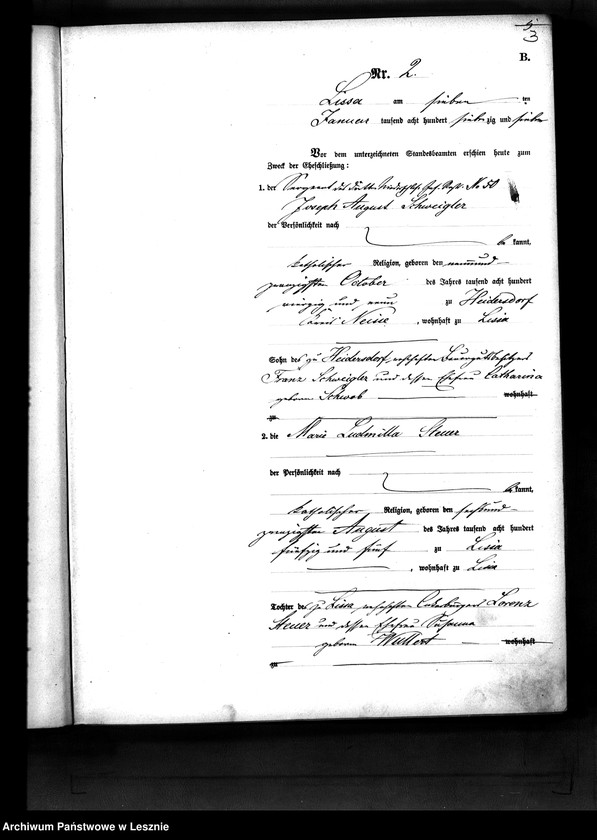 3
B.
Nr. 2.
Lissa am sieben ten
Januar tausend acht hundert siebenzig und sieben
Vor dem unterzeichneten Standesbeamten erschien heute zum
Zweck der Eheschließung:
1. der Sergeant des dritten No 50
Joseph August Schweigler
der Persönlichkeit nach
be kannt,
katholischer Religion, geboren den neunund
zwanzigsten October des Jahres tausend acht hundert
vierzig und neun zu Heidersdorf
Kreis Neisse, wohnhaft zu Lissa
Sohn des zu Heidersdorf wohnhaften Bauergutsbesitzers
Franz Schweigler und dessen Ehefrau Catharina
geborene Schwob wohnhaft
zu
2. die Marie Ludmilla Steuer
der Persönlichkeit nach
be kannt,
katholischer Religion, geboren den sechsund
zwanzigsten August des Jahres tausend acht hundert
fünfzig und fünf zu Lissa
, wohnhaft zu Lissa
Tochter des zu Lissa wohnhaften Lorenz
Steuer und dessen Ehefrau Susanna
geborene Wuttert wohnhaft
zu
Archiwum Państwowe w Lesznie